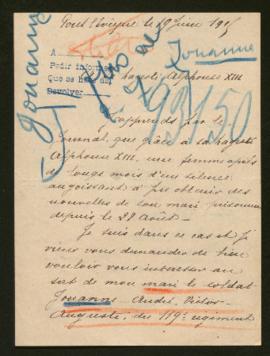 Pont l'Evêque le 19 Juin 1915
Jouanne
A
Pedir inform
Que se ha
Devolver
Jouanne
Majesté Alphonse XIII
93150
J'apprends par le
Journal, que grâce à sa Majesté
Alphonse XIII, une femme après
de longs mois d'un silence
angoissant a pu obtenir des
nouvelles de son mari prisonnier
depuis le 28 Août.
Je suis dans ce cas et je
viens vous demander de bien
vouloir vous intéresser au
sort de mon mari le soldat
Jouanne André-Victor-
Auguste, du 119e régiment